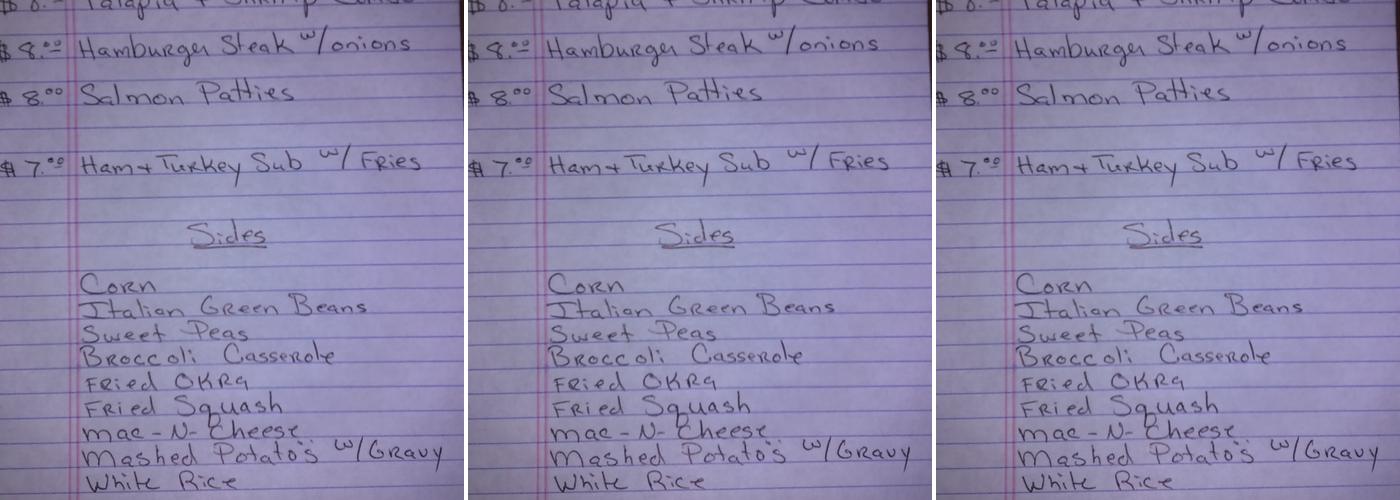 Talapia +
$ 8.00 Hamburger Steak w/onions
$ 8.00 Salmon Patties
$ 7.00 Ham + Turkey Sub w/ Fries
Sides
Corn
Italian Green Beans
Sweet Peas
Broccoli Casserole
Fried Okra
Fried Squash
Mac-N-Cheese
Mashed Potato's w/Gravy
White Rice
Talapia +
$ 8.00 Hamburger Steak w/onions
$ 8.00 Salmon Patties
$ 7.00 Ham + Turkey Sub w/ Fries
Sides
Corn
Italian Green Beans
Sweet Peas
Broccoli Casserole
Fried Okra
Fried Squash
Mac-N-Cheese
Mashed Potato's w/Gravy
White Rice
Talapia +
$ 8.00 Hamburger Steak w/onions
$ 8.00 Salmon Patties
$ 7.00 Ham + Turkey Sub w/ Fries
Sides
Corn
Italian Green Beans
Sweet Peas
Broccoli Casserole
Fried Okra
Fried Squash
Mac-N-Cheese
Mashed Potato's w/Gravy
White Rice